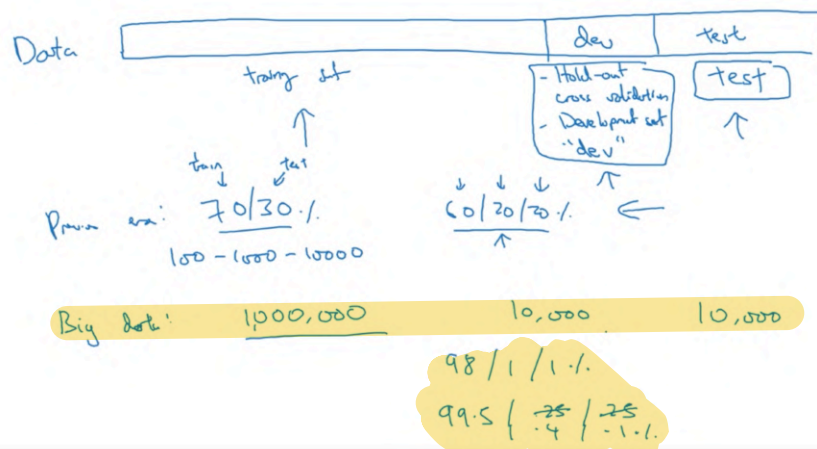 Data dev test
traing set
- Hold-out
cross validation
- Development set
"dev"
test
train test
Previous era: 70/30 % 60/20/20 %
100 - 1000 - 10000
Big data: 1,000,000 10,000 10,000
98 / 1 / 1 %
99.5 / .25 / .25
.4 / .1 %